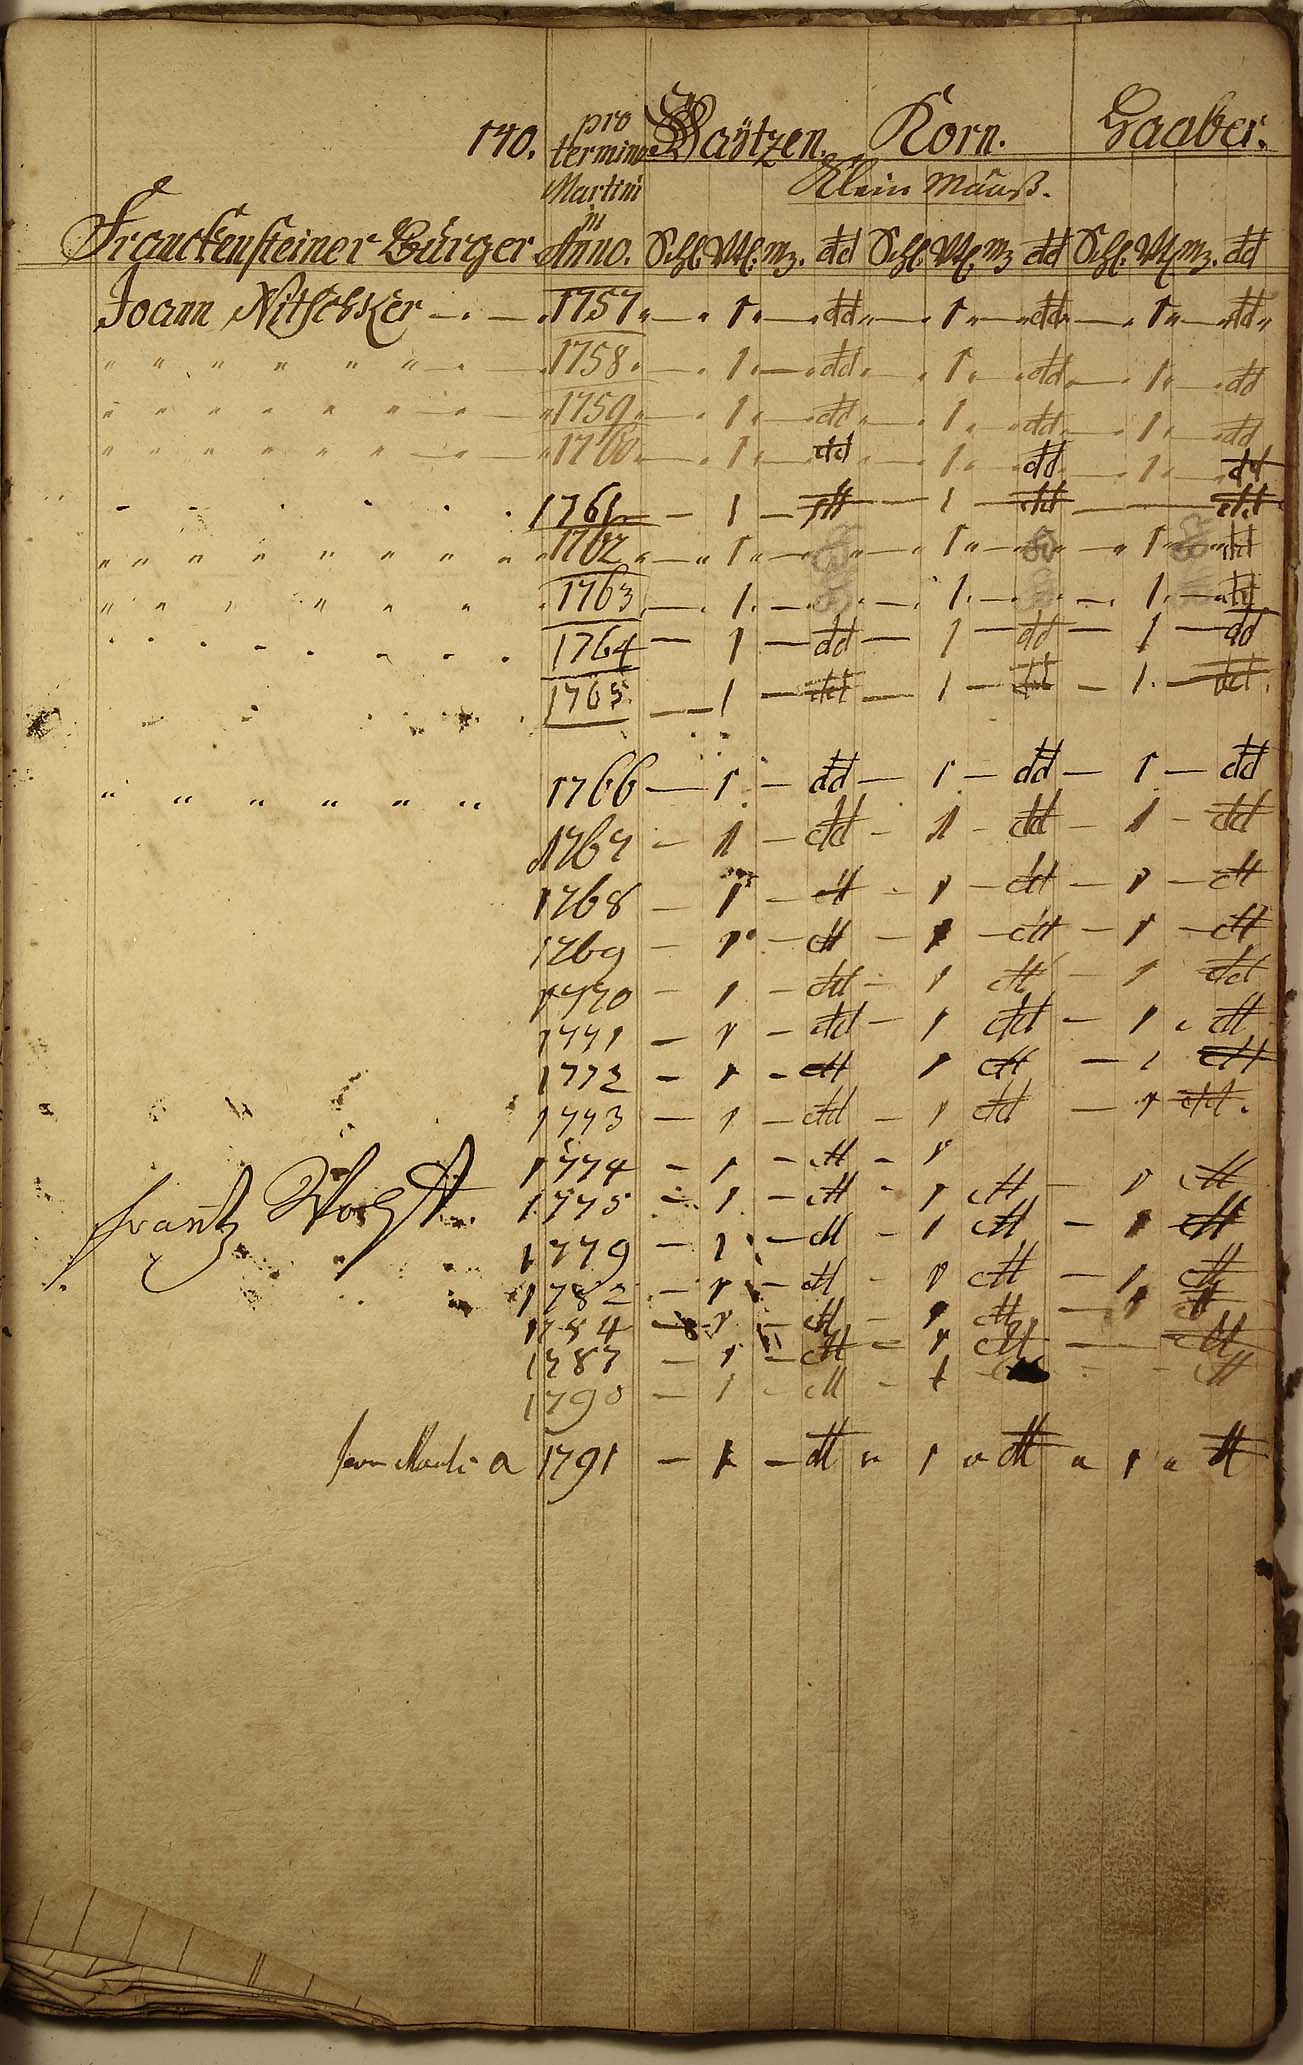 140. pro termino Martini in Anno. Waÿtzen. Korn. Haaber.
Klein Mäaß.
Franckensteiner Bürger Anno. Schl: Vtl: mz. dd Schl: Vtl: mz dd Schl: Vtl: mz. dd
Joann Nitschker — . — . 1757 — 1 — dd — 1 — dd — 1 — dd
" " " " " " — . — 1758 — 1 — dd — 1 — dd — 1 — dd
" " " " " " — . — 1759 — 1 — dd — 1 — dd — 1 — dd
" " " " " " " — . — 1760 — 1 — dd — 1 — dd — 1 — dd
1761 — 1 — dd — 1 — dd — dd
" " " " " " " " " 1762 — 1 — — 1 — — 1 — dd
" " " " " " 1763 — 1 — — 1 — — 1 — dd
1764 — 1 — dd — 1 — dd — 1 — dd
1765 — 1 — dd — 1 — dd — 1 — dd
" " " " " " 1766 — 1 — dd — 1 — dd — 1 — dd
1767 — 1 — dd — 1 — dd — 1 — dd
1768 — 1 — dd — 1 — dd — 1 — dd
1769 — 1 — dd — 1 — dd — 1 — dd
1770 — 1 — dd — 1 dd — 1 dd
1771 — 1 — dd — 1 dd — 1 dd
1772 — 1 — dd 1 dd — 1 dd
1773 — 1 — dd — 1 dd — 1 dd
1774 — 1 — dd — 1
Frantz Voigt. 1775 — 1 — dd — 1 dd — 1 dd
1779 — 1 — dd — 1 dd — 1 dd
1782 — 1 — dd — 1 dd — 1 dd
1784 — 1 — dd — 1 dd — 1 dd
1787 — 1 — dd — 1 dd — dd
1790 — 1 — dd — 1 dd
a 1791 — 1 — dd " 1 " dd " 1 " dd